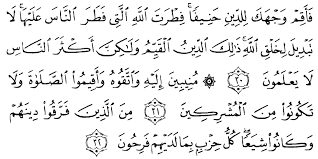 فَأَقِمْ وَجْهَكَ لِلدِّينِ حَنِيفًا ۚ فِطْرَتَ اللَّهِ الَّتِي فَطَرَ النَّاسَ عَلَيْهَا ۚ لَا
تَبْدِيلَ لِخَلْقِ اللَّهِ ۚ ذَٰلِكَ الدِّينُ الْقَيِّمُ وَلَٰكِنَّ أَكْثَرَ النَّاسِ
لَا يَعْلَمُونَ ٣٠ ۞ مُنِيبِينَ إِلَيْهِ وَاتَّقُوهُ وَأَقِيمُوا الصَّلَاةَ وَلَا
تَكُونُوا مِنَ الْمُشْرِكِينَ ٣١ مِنَ الَّذِينَ فَرَّقُوا دِينَهُمْ
وَكَانُوا شِيَعًا ۖ كُلُّ حِزْبٍ بِمَا لَدَيْهِمْ فَرِحُونَ ٣٢